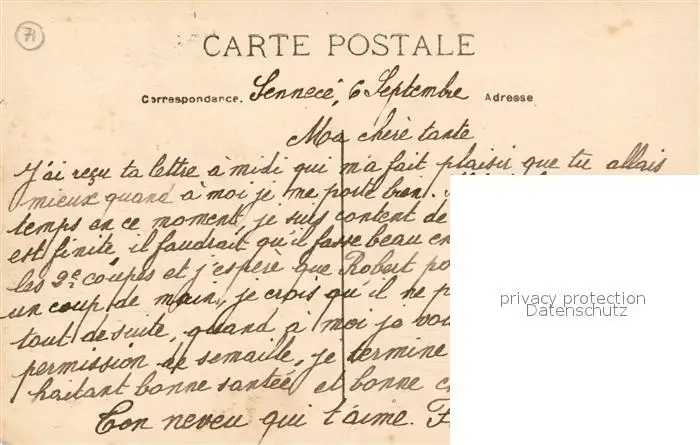 71
CARTE POSTALE
Correspondance. Sennecé, 6 Septembre Adresse
Ma chère tante
J'ai reçu ta lettre à midi qui m'a fait plaisir que tu allais
mieux quand à moi je me porte bien.
temps en ce moment, je suis content de
est finite, il faudrait qu'il fasse beau en
les 2e coupes et j'espère que Robert po
un coup de main, je crois qu'il ne p
tout de suite, quand à moi je vou
permission de semaille, je termine
haitant bonne santée et bonne c
Ton neveu qui t'aime. F
privacy protection
Datenschutz